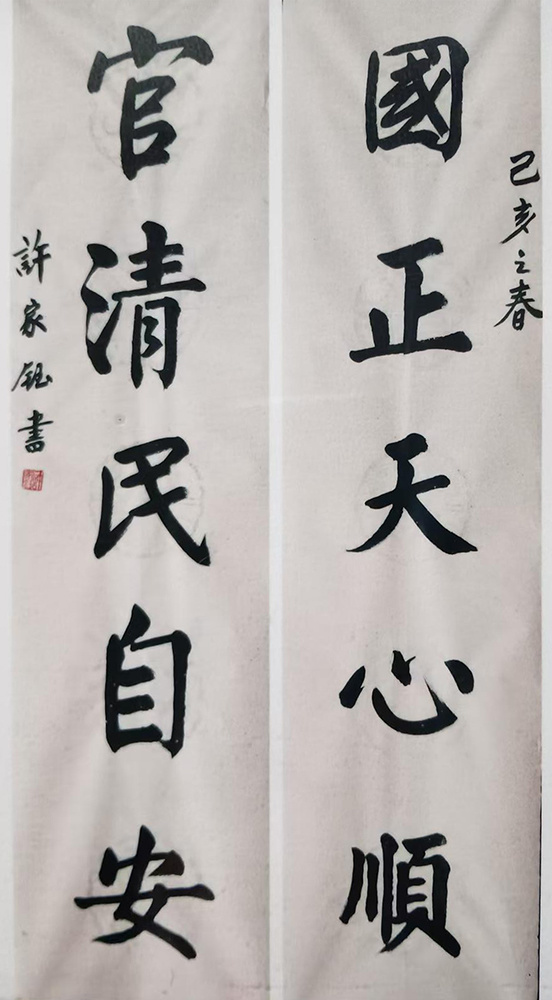 己亥之春
國正天心順
官清民自安
許家鈺書